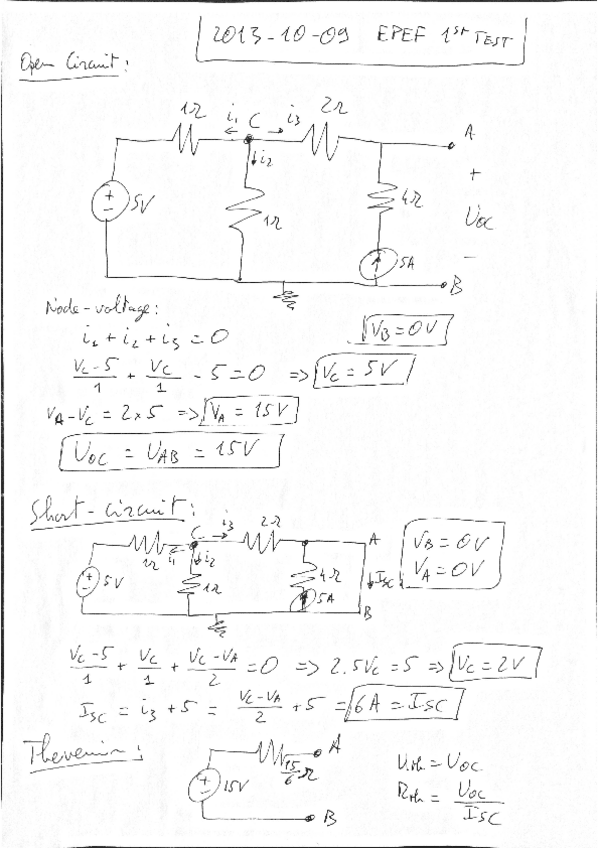 2013-10-09 EPEF 1ST TEST
Open Circuit:
1Ω i₁ C i₃ 2Ω A
i₂ +
5V 1Ω 4Ω UOC
5A -
B
Node-voltage:
i₁ + i₂ + i₃ = 0 VB = 0V
(VC-5)/1 + VC/1 - 5 = 0 => VC = 5V
VA-VC = 2×5 => VA = 15V
UOC = UAB = 15V
Short-circuit:
C i₃ 2Ω A VB = 0V
1Ω i₁ i₂ VA = 0V
5V 1Ω 4Ω ISC
5A B
(VC-5)/1 + VC/1 + (VC-VA)/2 = 0 => 2.5VC = 5 => VC = 2V
ISC = i₃ + 5 = (VC-VA)/2 + 5 = 6A = ISC
Thevenin:
15/6 Ω A Uth = UOC
15V Rth = UOC/ISC
B